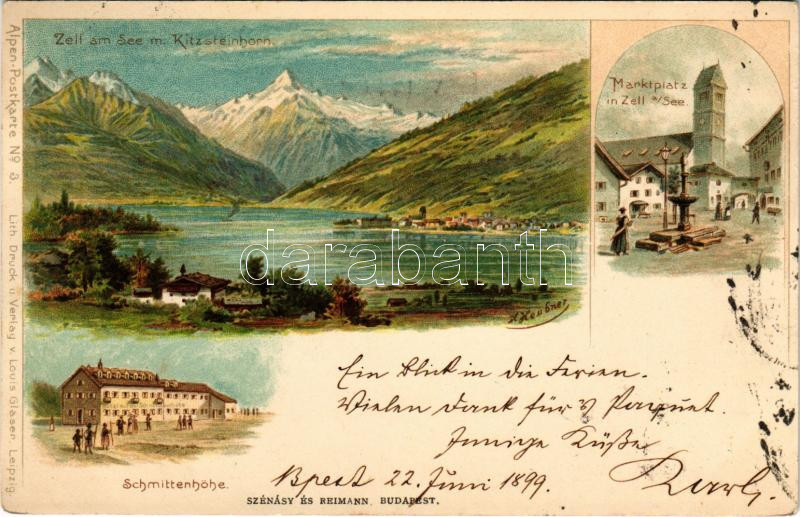 Zell am See m. Kitzsteinhorn.
Marktplatz
in Zell a/See.
Alpen-Postkarte No 3.
Lith. Druck u. Verlag v. Louis Glaser, Leipzig.
darabanth
H. Heubner
Ein Blick in die Ferien.
Vielen Dank für's Paquet.
Innige Küße
Bpest 22. Juni 1899.
Karl
Schmittenhöhe.
SZÉNÁSY ÉS REIMANN, BUDAPEST.